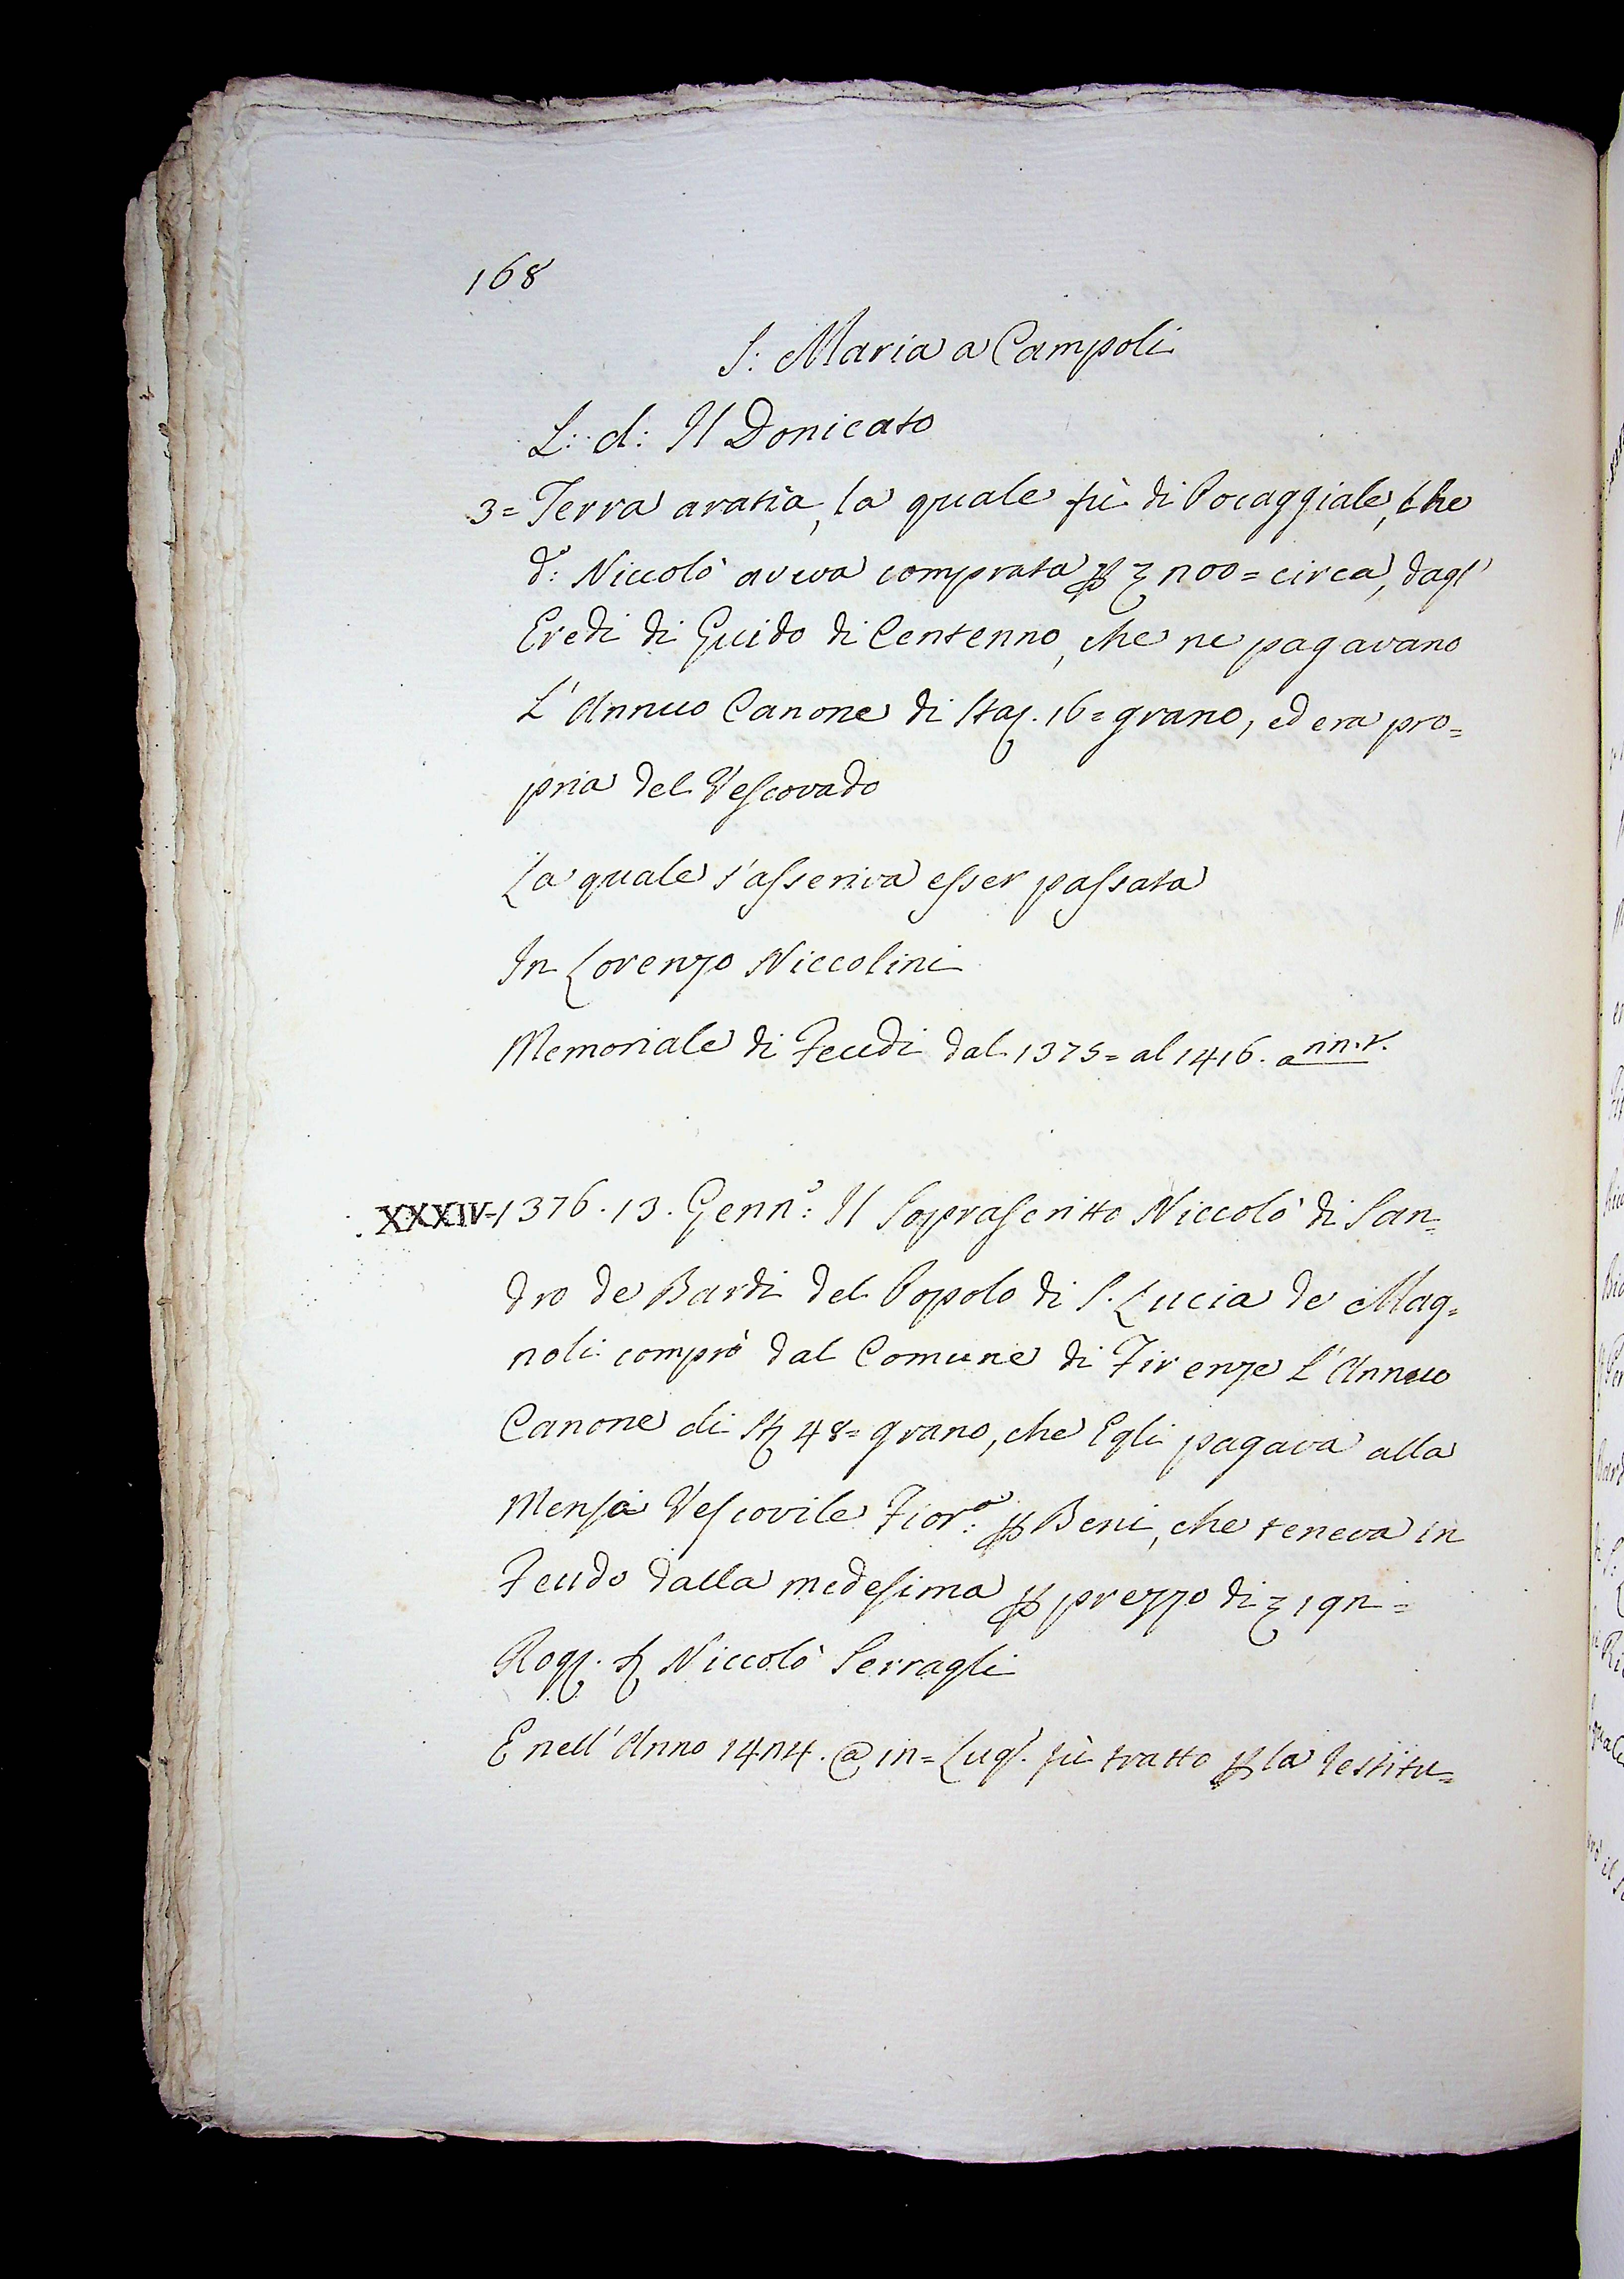 168
S: Maria a Campoli
L: d: Il Donicato
3= Terra aratìa, la quale fù di Pocaggiale, che
d:° Niccolò aveva comprata ꝑ 200= circa, dagl'
Eredi di Guido di Centenno, che ne pagavano
L'Annuo Canone di Staj. 16= grano, ed era pro=
pria del Vescovado
La quale s'asseriva esser passata
In Lorenzo Niccolini
Memoriale di Feudi dal 1375= al 1416. a
XXXIV-1376. 13. Genn:° Il Soprascritto Niccolò di San=
dro de Bardi del Popolo di S. Lucia de Mag=
noli comprò dal Comune di Firenze L'Annuo
Canone di 48= grano, che Egli pagava alla
Mensa Vescovile Fior:ª ꝑ Beni, che teneva in
Feudo dalla medesima ꝑ prezzo di 192=
Rog. Niccolò Serragli
E nell'Anno 1424. @ 12= Lugl. fù tratto ꝑ la